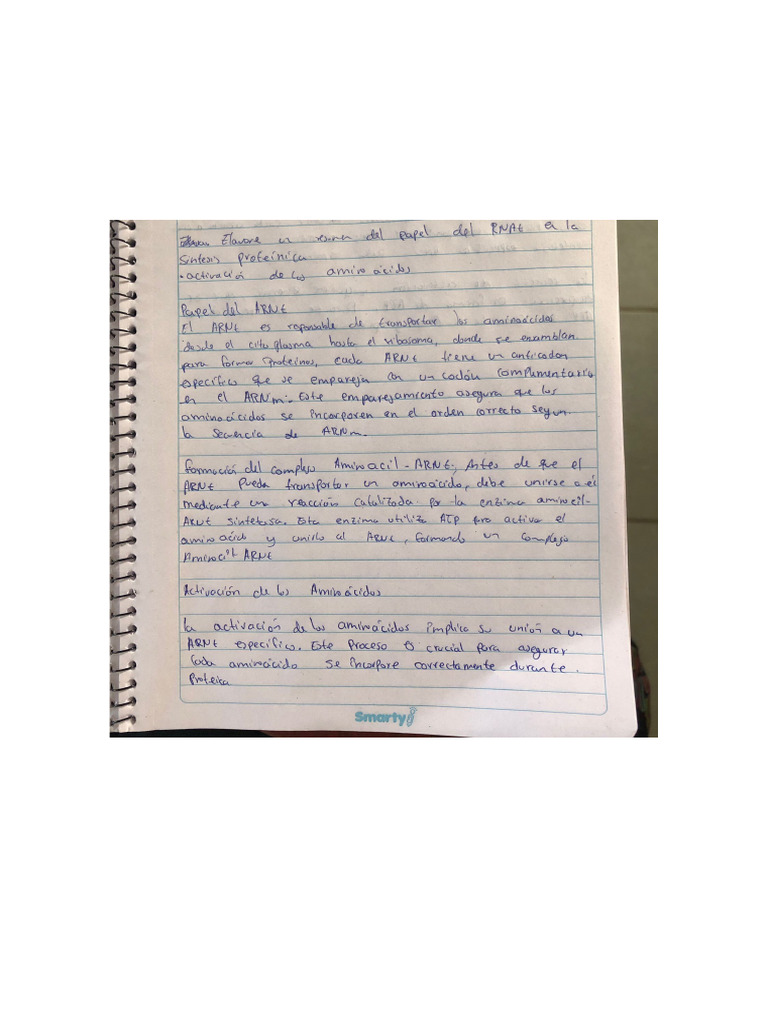 Elavore un resumen del papel del RNAt en la
Sintesis proteínica
• activación de los amino ácidos
Papel del ARNt
El ARNt es responsable de transportar los aminoácidos
desde el cito plasma hasta el ribosoma, donde se ensamblan
para formar Proteínas, cada ARNt tiene un anticodon
especifico que se empareja con un codón complementario
en el ARNm. Este emparejamiento asegura que los
aminoácidos se incorporen en el orden correcto segun
la secuencia de ARNm.
Formación del complejo Aminoacil-ARNt, Antes de que el
ARNt pueda transportar un aminoácido, debe unirse a él
mediante una reacción catalizada por la enzima aminocil-
ARNt sintetasa. Esta enzima utiliza ATP para activar el
amino ácido y unirlo al ARNt, formando un complejo
Aminocil ARNt
Activación de los Aminoácidos
la activación de los aminoácidos implica su unión a un
ARNt especifico. Este Proceso es crucial para asegurar
Cada aminoácido se incorpore correctamente durante.
Proteina
Smarty